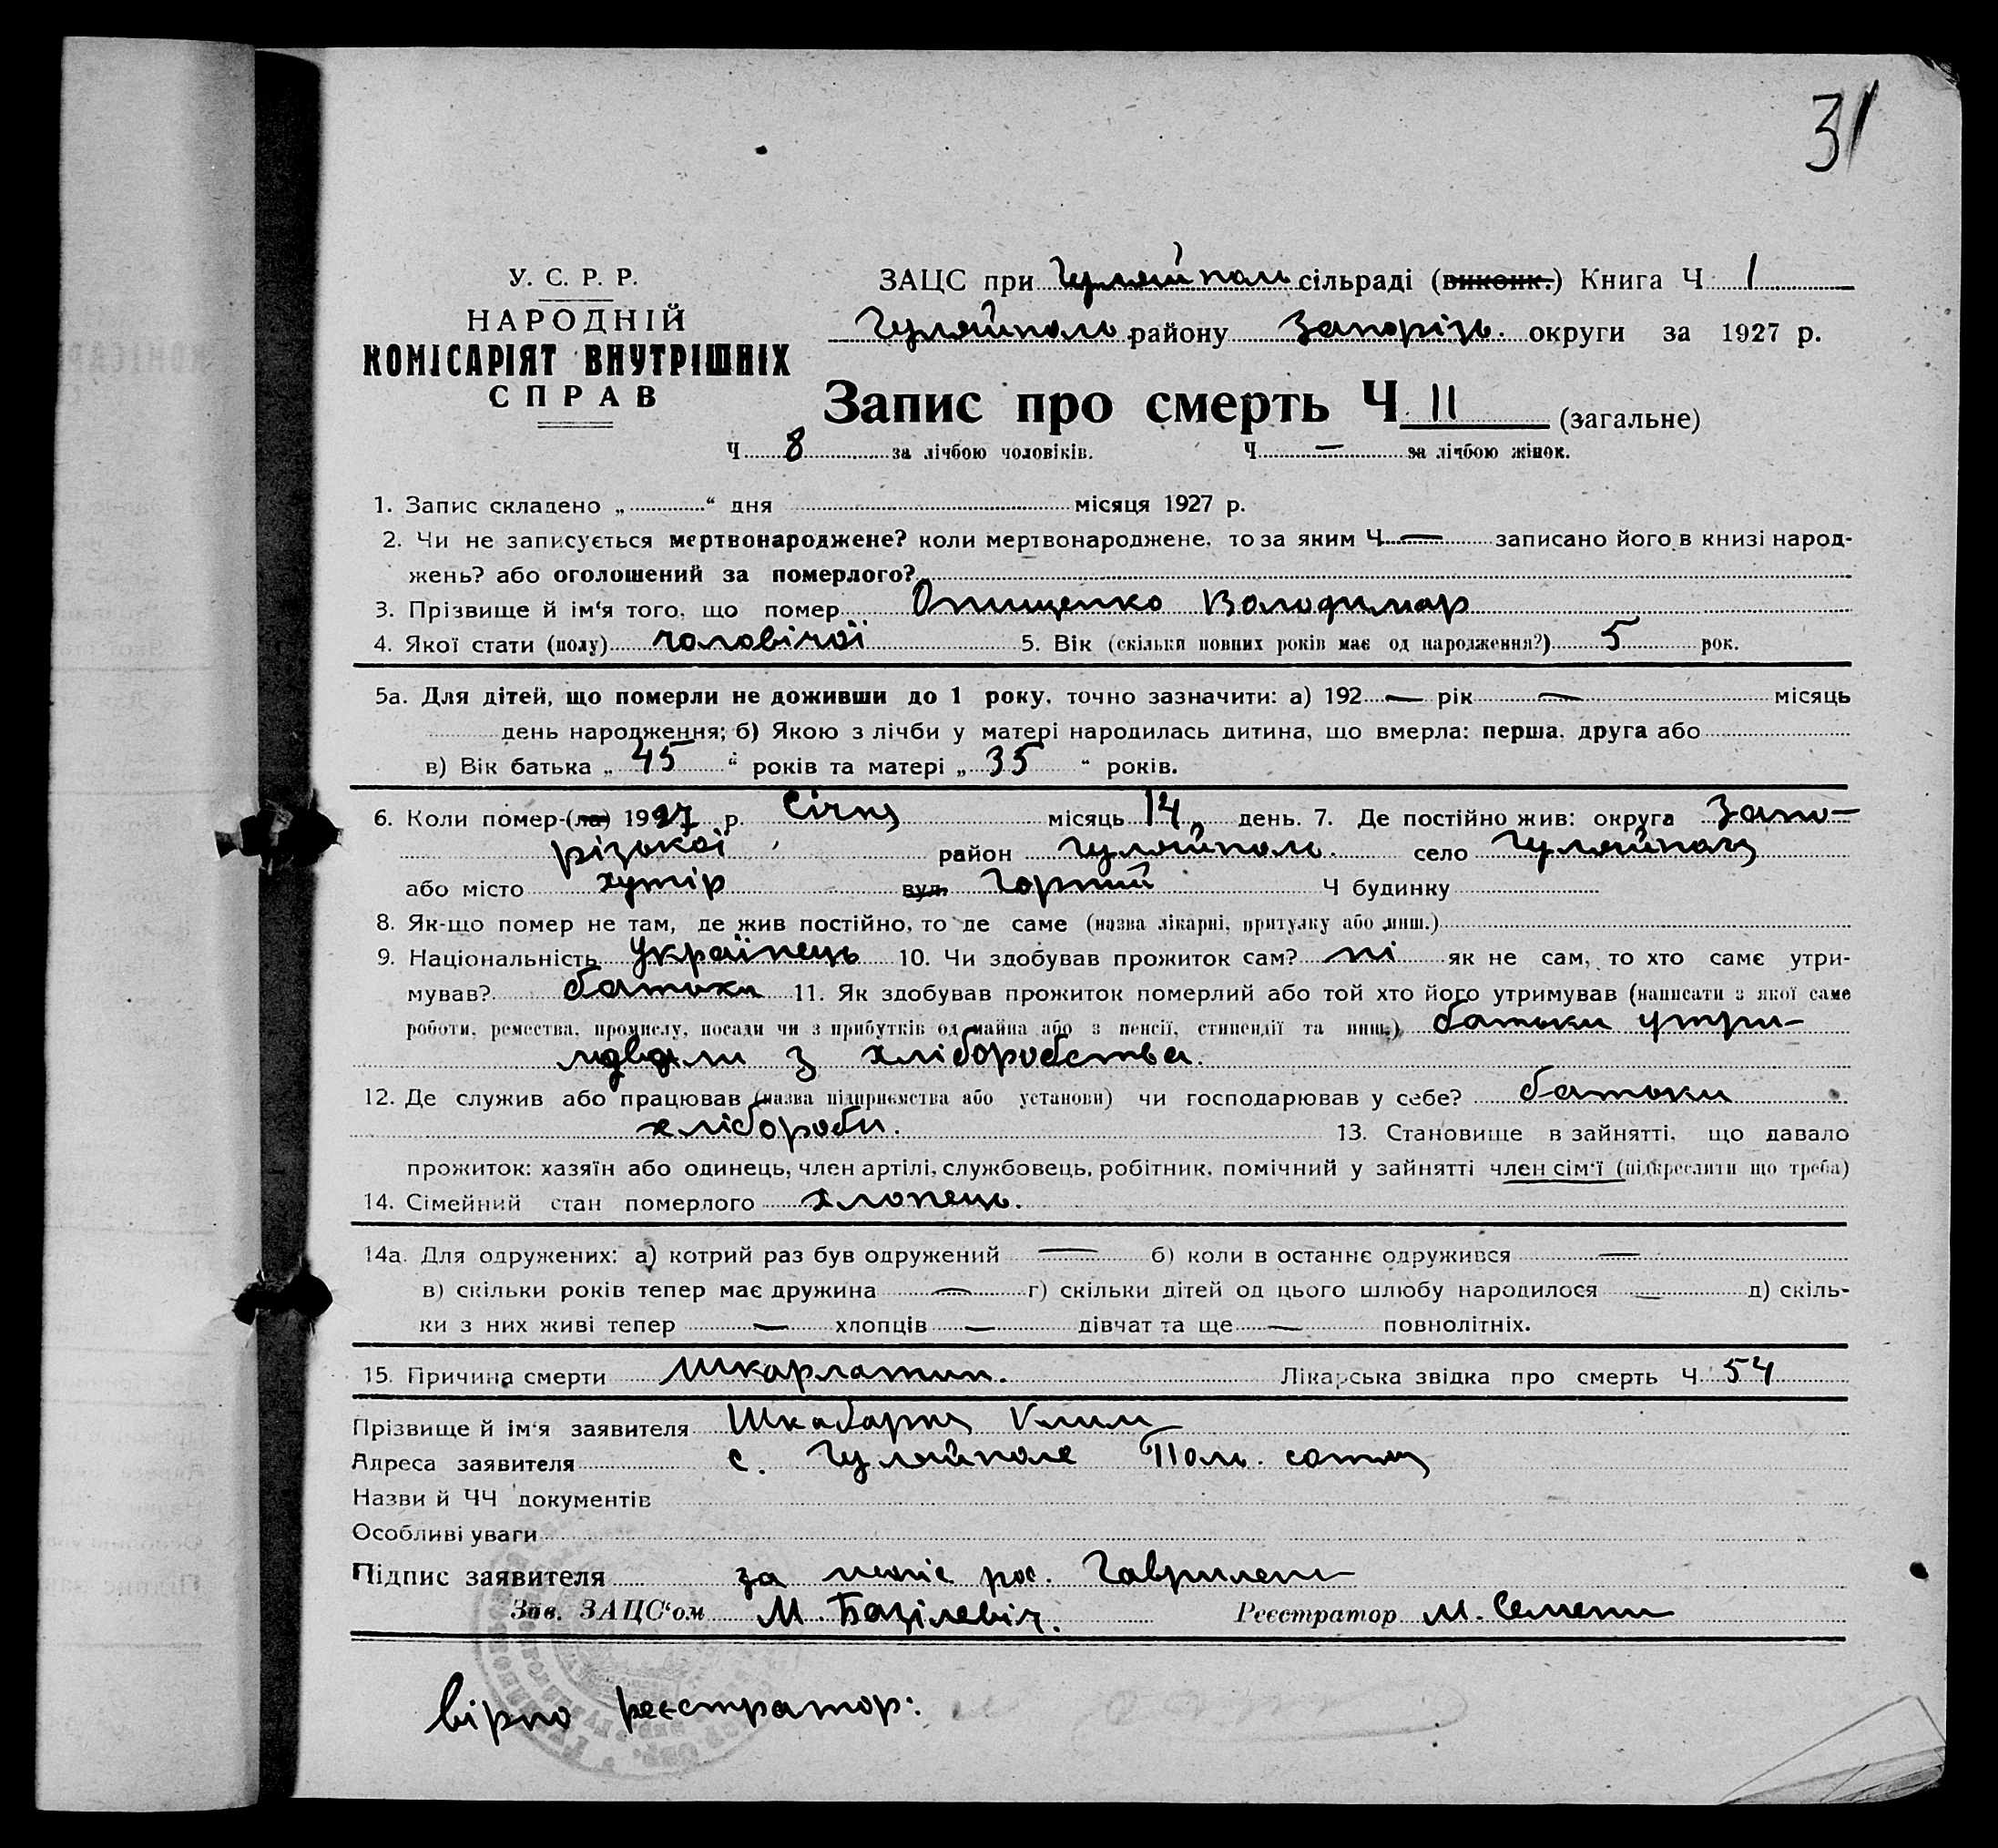 31
У. С. Р. Р.
НАРОДНІЙ
КОМІСАРІЯТ ВНУТРІШНІХ
СПРАВ
ЗАЦС при Гуляйполь сільраді (виконк.) Книга Ч 1
Гуляйполь району Запорізь. округи за 1927 р.
Запис про смерть Ч 11 (загальне)
Ч 8 за лічбою чоловіків. Ч — за лічбою жінок.
1. Запис складено „ “ дня місяця 1927 р.
2. Чи не записується мертвонароджене? коли мертвонароджене, то за яким Ч — записано його в книзі народ-
жень? або оголошений за померлого?
3. Прізвище й ім‘я того, що помер Онищенко Володимир
4. Якої стати (полу) чоловічої 5. Вік (скільки повних років має од народження?) 5 рок.
5а. Для дітей, що померли не доживши до 1 року, точно зазначити: а) 192 — рік — місяць
день народження; б) Якою з лічби у матері народилась дитина, що вмерла: перша, друга або
в) Вік батька „ 45 “ років та матері „ 35 “ років.
6. Коли помер-(ла) 1927 р. Січня місяць 14 день. 7. Де постійно жив: округа Запо-
різької район Гуляйполь. село Гуляйполя
або місто хутір вул. Горький Ч будинку
8. Як-що помер не там, де жив постійно, то де саме (назва лікарні, притулку або инш.)
9. Національність Українець 10. Чи здобував прожиток сам? ні як не сам, то хто саме утри-
мував? батьки 11. Як здобував прожиток померлий або той хто його утримував (написати з якої саме
роботи, ремества, промислу, посади чи з прибутків од майна або з пенсії, стипендії та инш.) батьки утри-
мували з хліборобства.
12. Де служив або працював (назва підприємства або установи) чи господарював у себе? батьки
хлібороби. 13. Становище в зайнятті, що давало
прожиток: хазяїн або одинець, член артілі, службовець, робітник, помічний у зайнятті член сім‘ї (підкреслити що треба)
14. Сімейний стан померлого хлопець.
14а. Для одружених: а) котрий раз був одружений — б) коли в останнє одружився —
в) скільки років тепер має дружина — г) скільки дітей од цього шлюбу народилося — д) скіль-
ки з них живі тепер — хлопців — дівчат та ще — повнолітніх.
15. Причина смерти Шкарлатин. Лікарська звідка про смерть Ч 54
Прізвище й ім‘я заявителя Шкабарня Клим
Адреса заявителя с. Гуляйполе Поль. сотня
Назви й ЧЧ документів
Особливі уваги
Підпис заявителя за рос.
Зав. ЗАЦС‘ом М. Базілевіч. Реєстратор М.
вірно реєстратор: